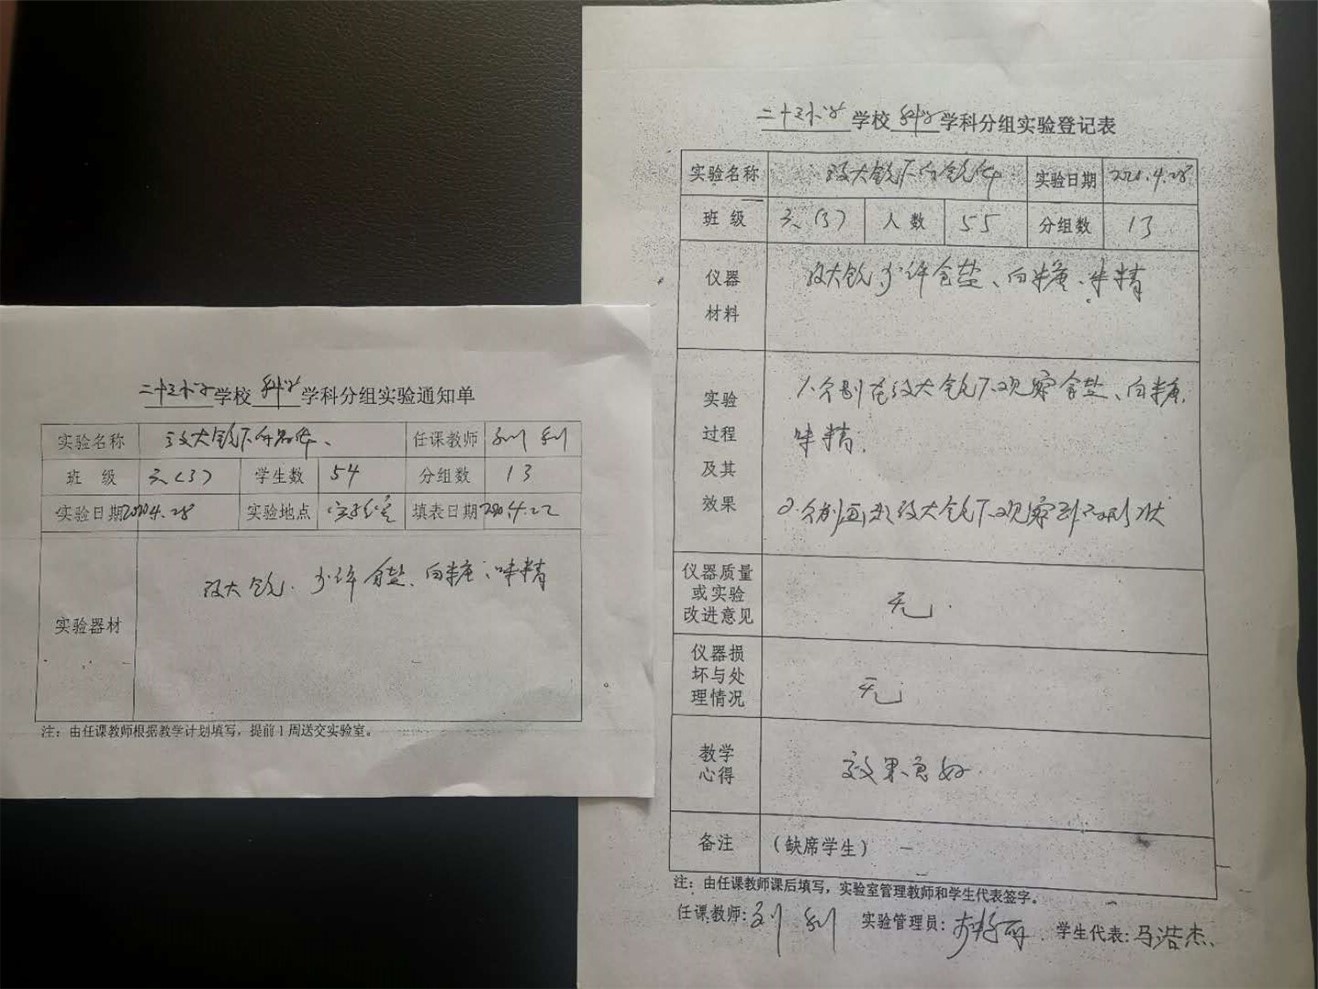 二十三小学学校科学学科分组实验通知单
实验名称 放大镜下的晶体、 任课教师 刘利
班级 三、(3) 学生数 54 分组数 13
实验日期 2020.4.28 实验地点 实验室 填表日期 2020.4.22
实验器材 放大镜. 少许食盐、白糖、味精
注：由任课教师根据教学计划填写，提前1周送交实验室。
二十三小学学校科学学科分组实验登记表
实验名称 放大镜下的 实验日期 4.28
班级 三、(3) 人数 55 分组数 13
仪器材料 放大镜、少许食盐、白糖、味精
实验过程及其效果 1.分别在放大镜下观察食盐、白糖、
味精;
2.分别画出放大镜下观察到的形状
仪器质量或实验改进意见 无.
仪器损坏与处理情况 无.
教学心得 效果良好.
备注 (缺席学生) —
注：由任课教师课后填写，实验室管理教师和学生代表签字。
任课教师:刘利 实验管理员: 学生代表:马浩杰.